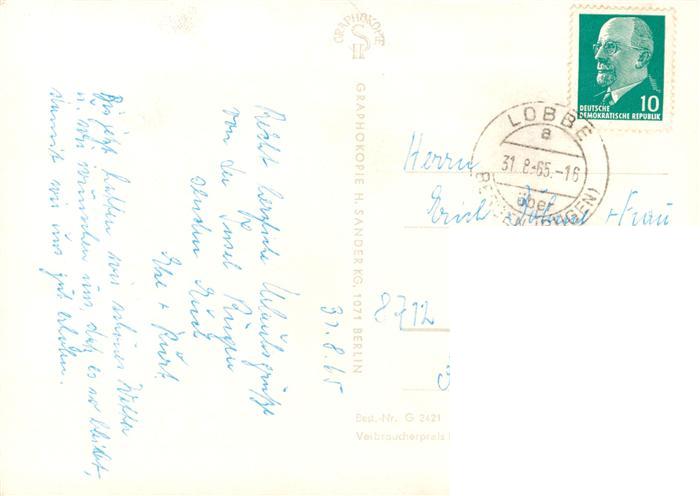 31.8.65
Recht herzliche Urlaubsgrüße
von der Insel Rügen
senden Euch
Ilse + Kurt
Bis jetzt hatten wir schönes Wetter
u. wir wünschen uns, daß es so bleibt,
damit wir uns gut erholen.
GRAPHOKOPIE
H S
GRAPHOKOPIE H. SANDER KG, 1071 BERLIN
Best.-Nr. G 2421
Verbraucherpreis
10
DEUTSCHE
DEMOKRATISCHE REPUBLIK
LOBBE
a
31.8.65.-16
über
BERGEN (RÜGEN)
Herrn
Erich + Frau
8712